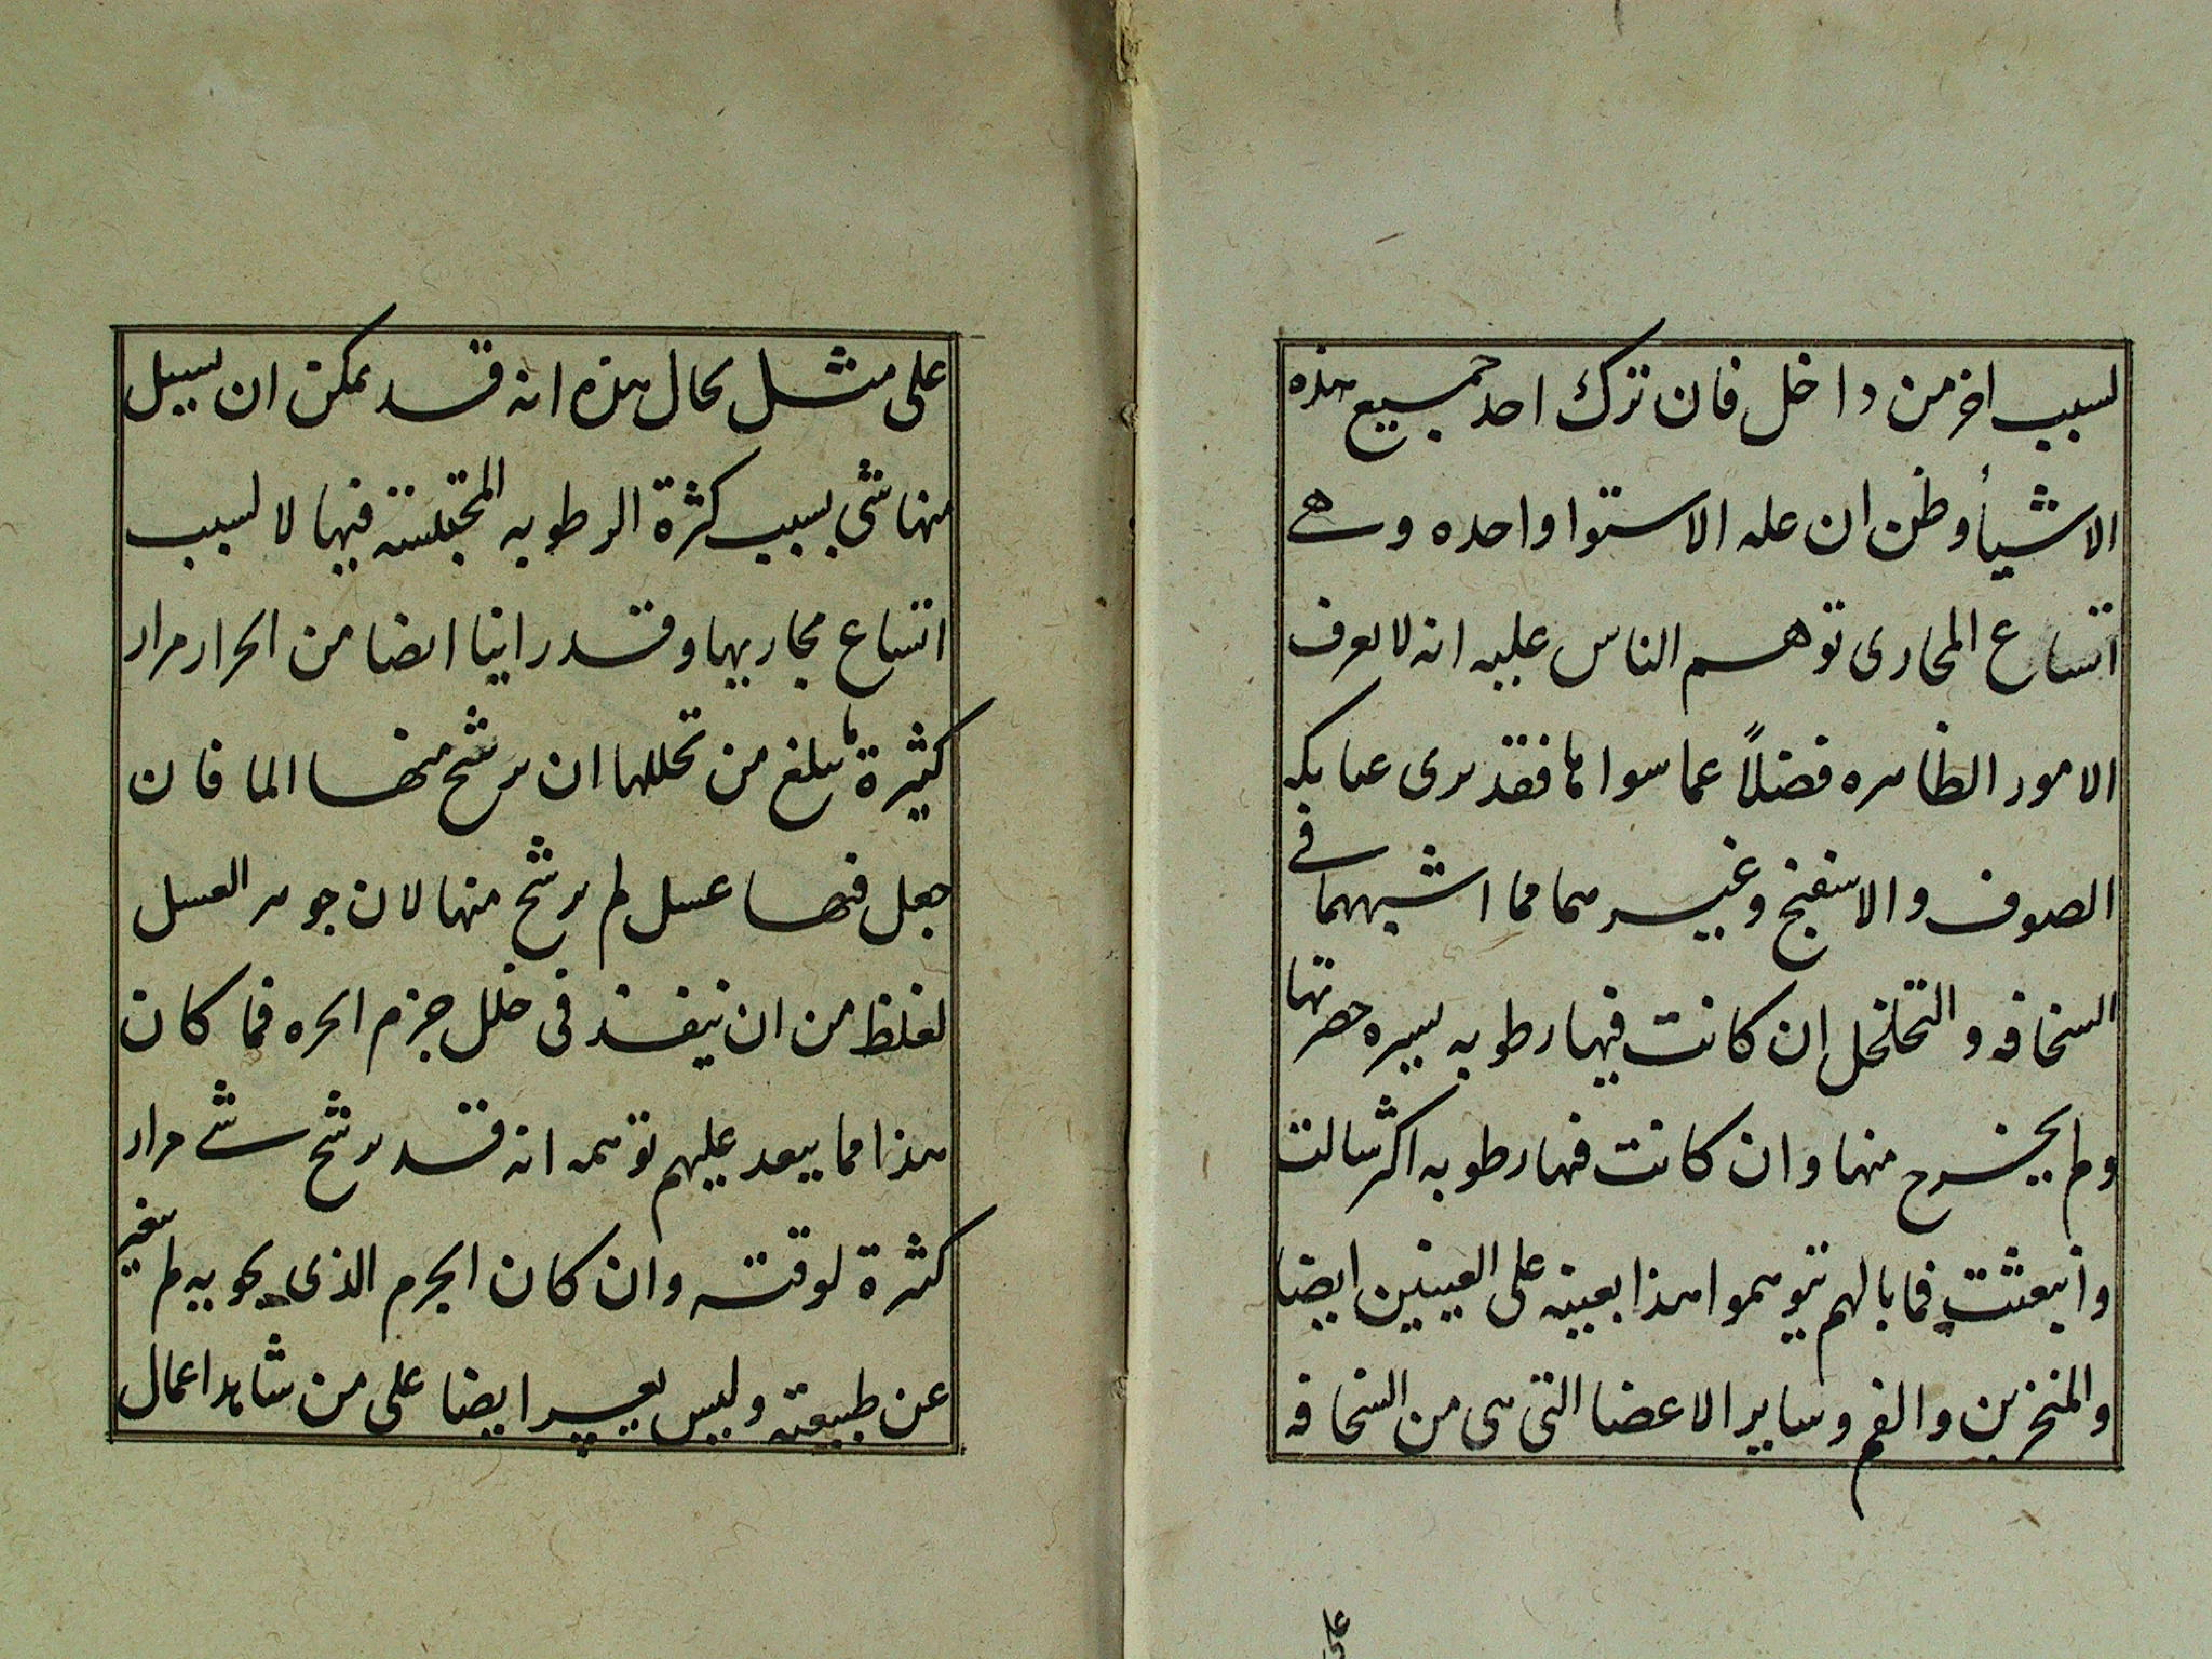 لسبب اخر من داخل فان ترك احد جميع هذه
الاشيأ وظن ان عله الاستوا واحده وهى
اتساع المجارى توهم الناس عليه انه لا يعرف
الامور الظاهره فضلاً عما سواها فقد يرى عيا بكه
الصوف والاسفنج وغيرهما مما اشبههما فى
السخافه والتخلخل ان كانت فيها رطوبه يسيره حصرتها
ولم يخرج منها وان كانت فيها رطوبه اكثر سالت
وانبعثت فما بالهم يتوهموا هذا بعينه على العينين ايضا
والمنخرين والفم وساير الاعضا التى هى من السخافه
على
على مثل بحال هذه انه قد يمكن ان يسيل
منها شى بسبب كثرة الرطوبه المحتبسة فيها لا لسبب
اتساع مجاريها وقد راينا ايضا من الجرار مرار
كثيرة ما يبلغ من تخللها ان يرشح منها الما فان
جعل فيها عسل لم يرشح منها لان جوهر العسل
لغلظ من ان ينفذ فى خلل جزم الجره فما كان
هذا مما يبعد عليهم توهمه انه قد يرشح شى مرار
كثرة لوقته وان كان الجرم الذى يحويه لم يتغير
عن طبيعته وليس يعسر ايضا على من شاهد اعمال